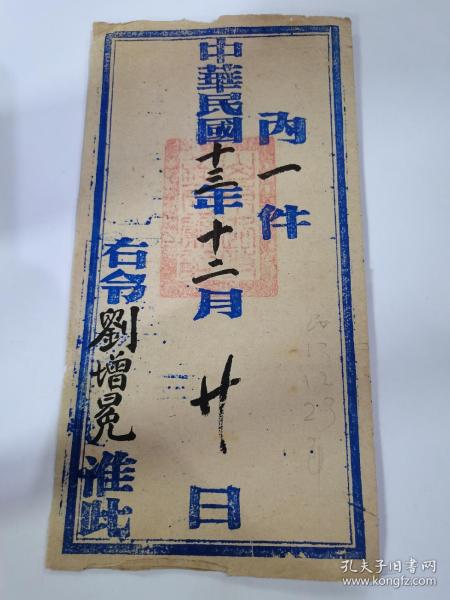 內一件
中華民國十三年十二月廿日
右令劉增冕准此
13
12
23
孔夫子旧书网
www.kongfz.com